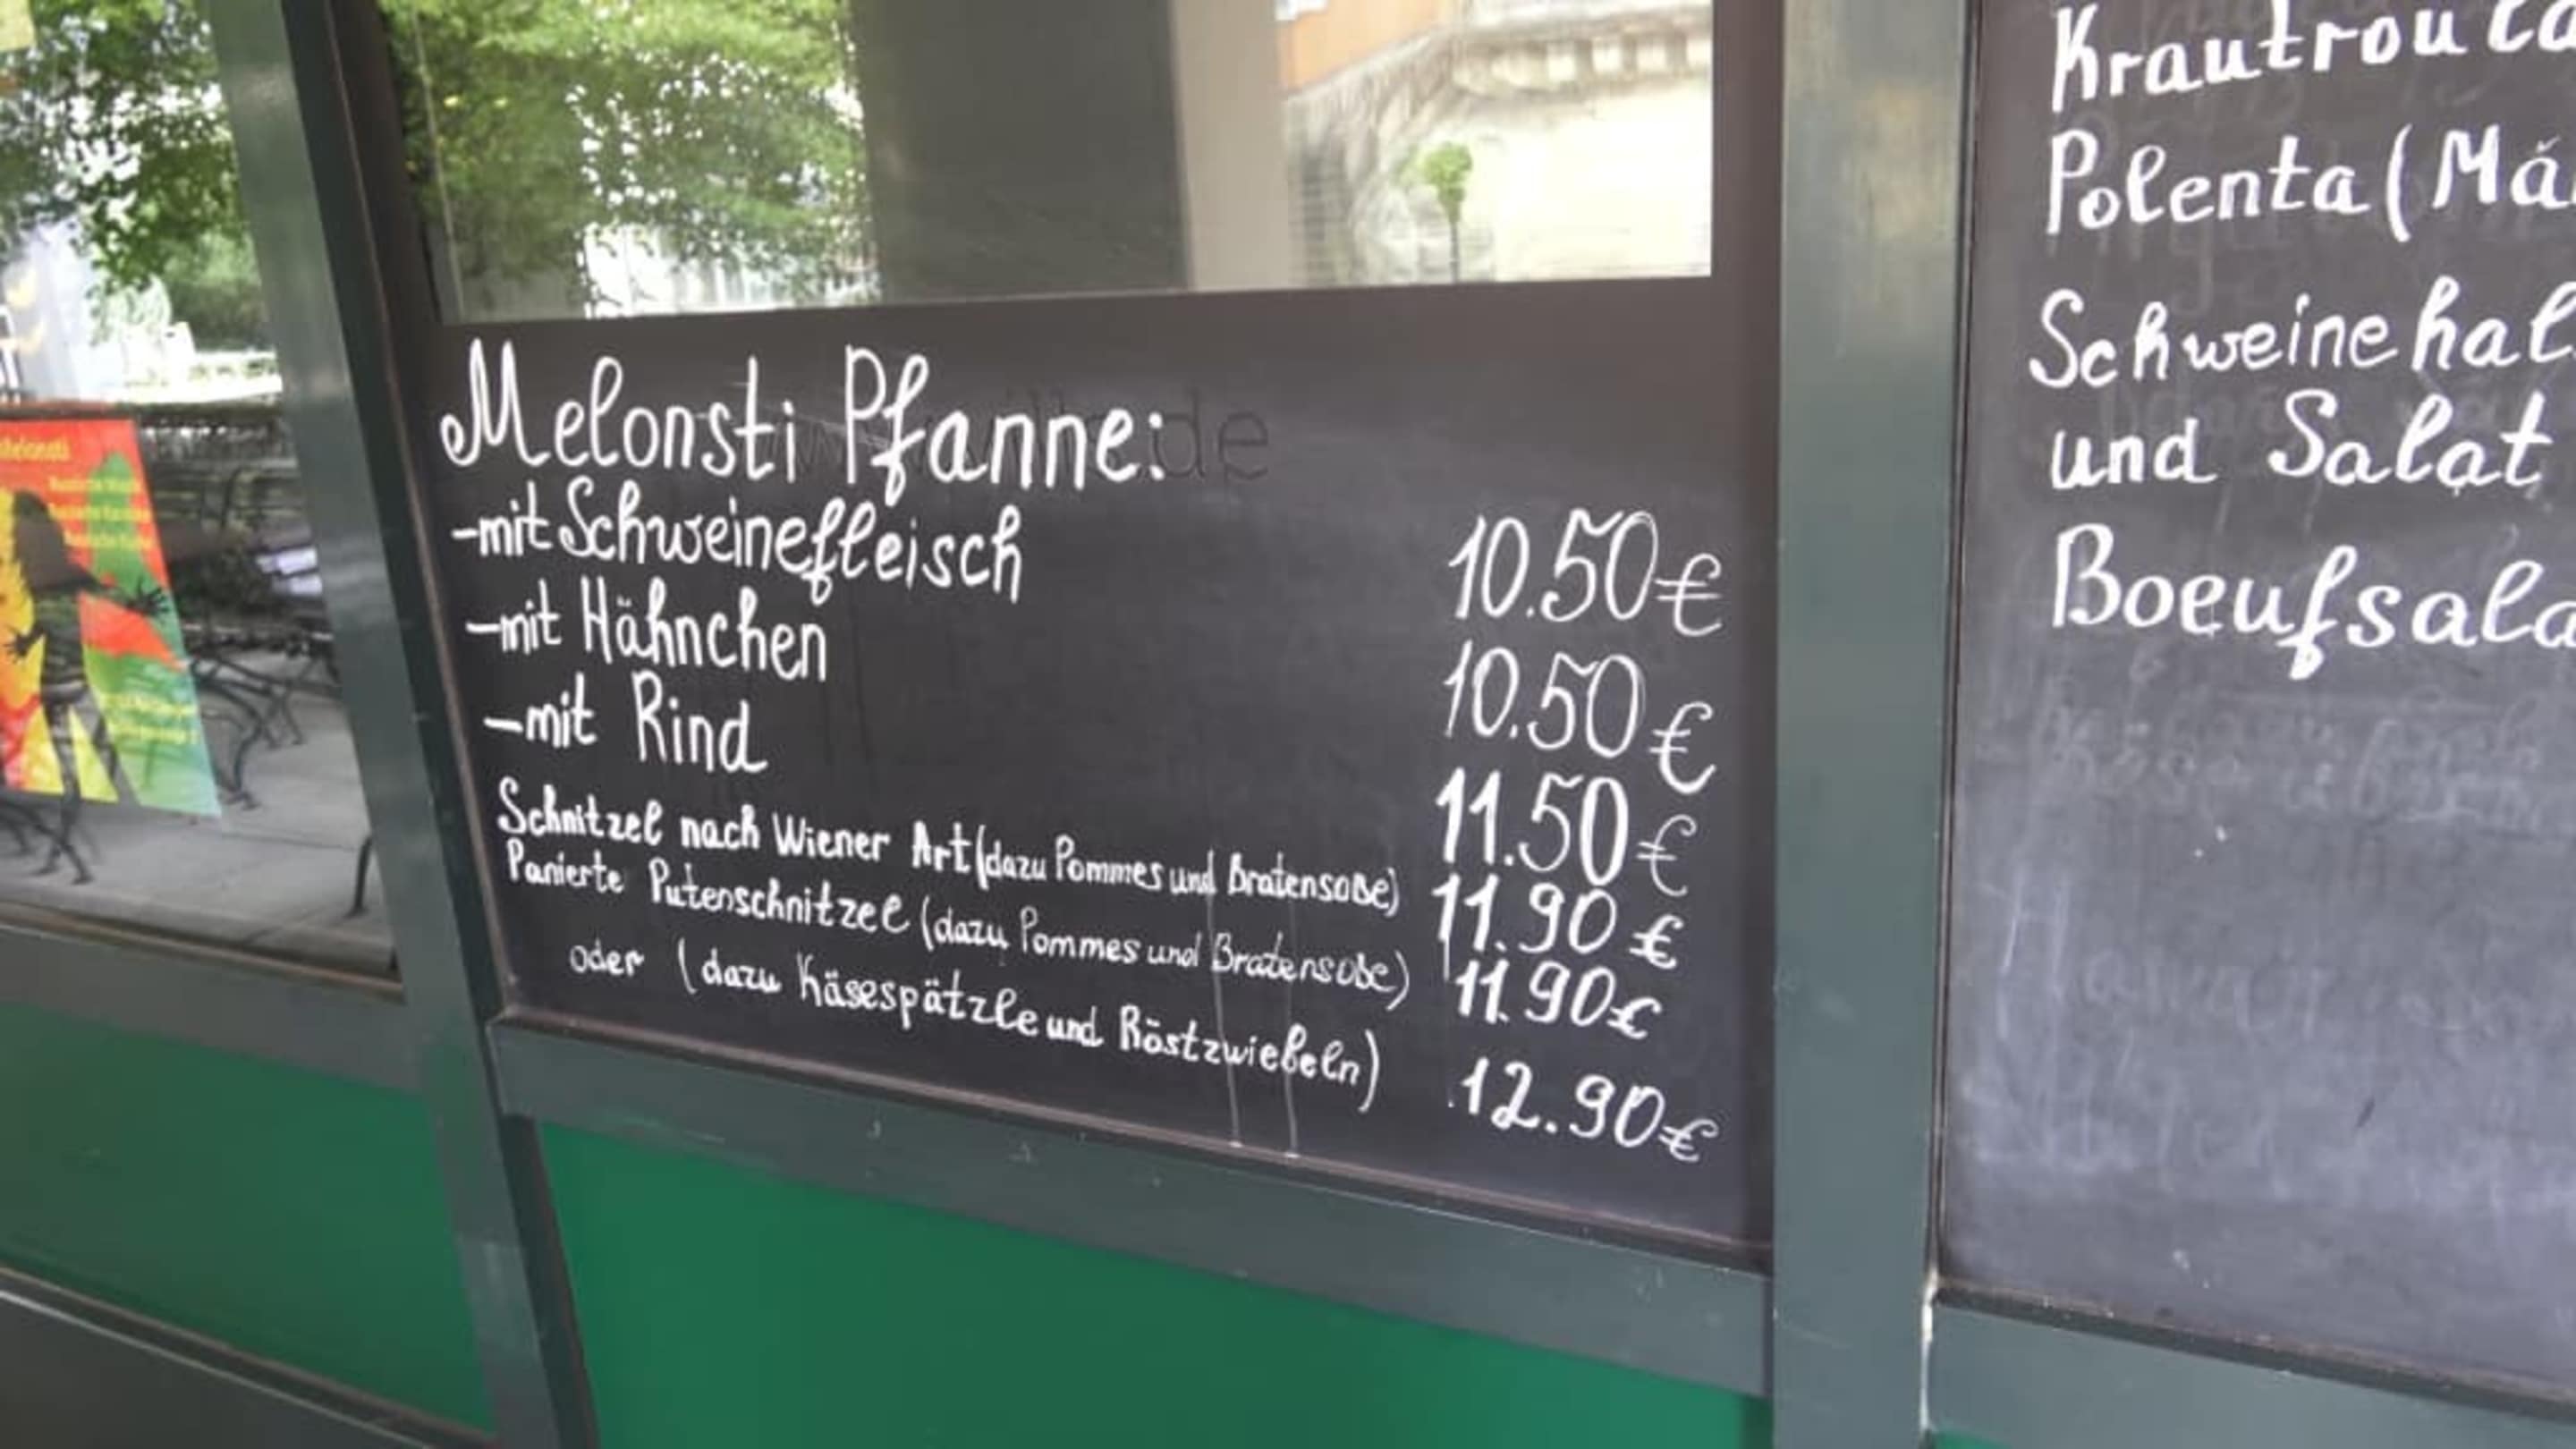 Melonsti Pfanne:
-mit Schweinefleisch 10.50€
-mit Hähnchen 10.50€
-mit Rind 11.50€
Schnitzel nach Wiener Art (dazu Pommes und Bratensoße) 11.90€
Panierte Putenschnitzel (dazu Pommes und Bratensoße) 11.90€
oder (dazu Käsespätzle und Röstzwiebeln) 12.90€
Polenta
und Salat